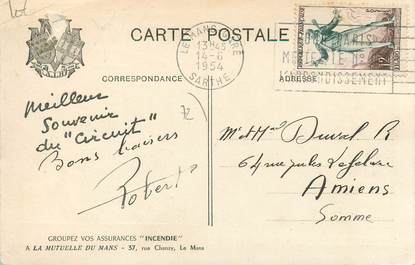 CARTE POSTALE
LE MANS GARE
13H45
14-6
1954
SARTHE
CORRESPONDANCE
ADRESSE
Meilleur
Souvenir
du "Circuit"
Bons baisers
Robert
72
Mr et Mme Duval R
64 rue Jules
Amiens
Somme
GROUPEZ VOS ASSURANCES "INCENDIE"
A LA MUTUELLE DU MANS - 37, rue Chanzy, Le Mans